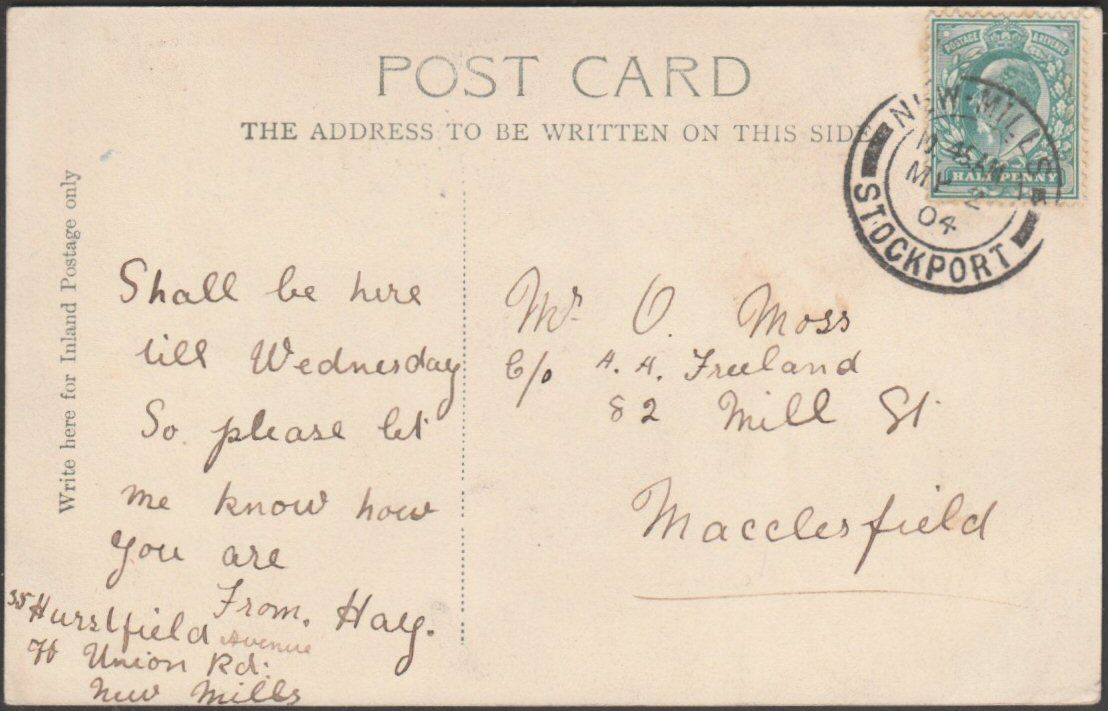 POST CARD
THE ADDRESS TO BE WRITTEN ON THIS SIDE
Write here for Inland Postage only
POSTAGE & REVENUE
HALF PENNY
NEW-MILLS
10 45 AM
MY 2
04
STOCKPORT
Shall be here
till Wednesday
So please let
me know how
you are
From. Hay.
35 Hurstfield Avenue
Union Rd.
New Mills
Mr. O. Moss
C/o A. A. Freeland
82 Mill St
Macclesfield